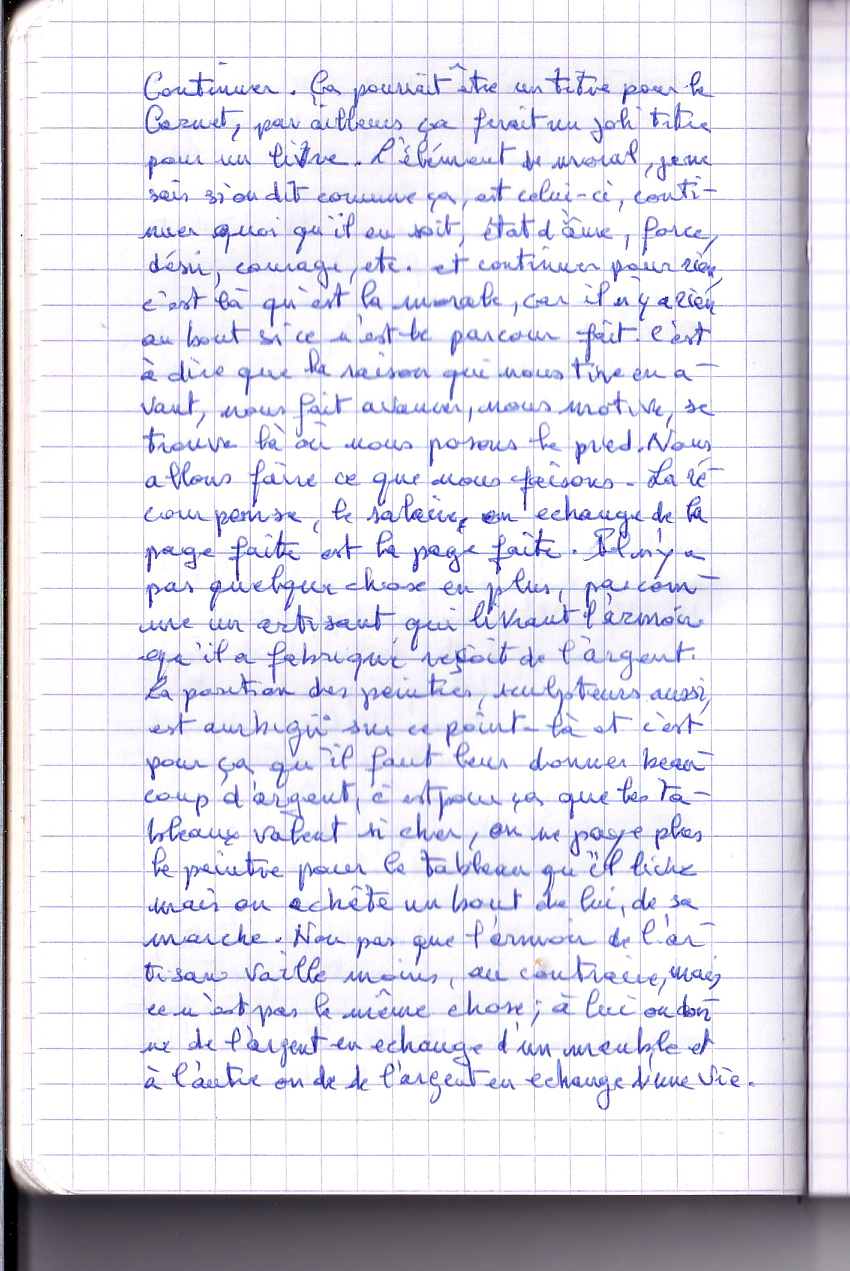 Continuer. Ça pourrait être un titre pour le
Carnet, par ailleurs ça ferait un joli titre
pour un livre. L'élément de moral, je ne
sais si on dit comme ça, est celui-ci, conti-
nuer quoi qu'il en soit, état d'âme, force,
désir, courage, etc. et continuer pour rien,
c'est là qu'est la morale, car il n'y a rien
au bout si ce n'est le parcour fait. C'est
à dire que la raison qui nous tire en a-
vant, nous fait avancer, nous motive, se
trouve là où nous posons le pied. Nous
allons faire ce que nous faisons. La ré-
compense, le salaire, en echange de la
page faite est la page faite. Il n'y a
pas quelque chose en plus, pas com-
me un artisant qui livrant l'armoir
qu'il a fabriqué reçoit de l'argent.
La position des peintres, sculpteurs aussi,
est ambigü sur ce point-là et c'est
pour ça qu'il faut leur donner beau-
coup d'argent, c'est pour ça que les ta-
bleaux valent si cher, on ne paye plas
le peintre pour le tableau qu'il
mais on achète un bout de lui, de sa
marche. Non pas que l'armoir de l'ar-
tisan vaille moins, au contraire, mais
ce n'est pas le même chose; à lui on don-
ne de l'argent en echange d'un meuble et
à l'autre on de de l'argent en echange d'une vie.